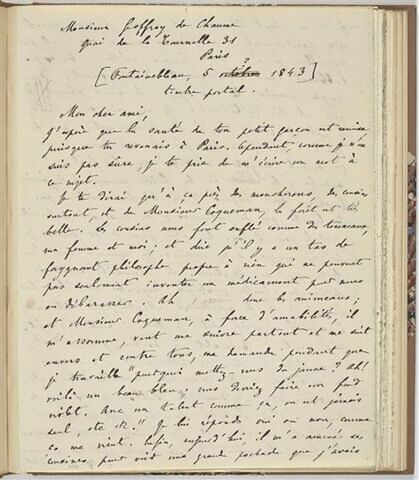 Monsieur Geoffroy de Chaume
Quai de la Tournelle 31
Paris
[Fontainebleau, 5 octobre ? 1843]
timbre postal.
Mon cher ami,
J'espère que la santé de ton petit garçon est remise,
puisque tu revenais à Paris. Cependant, comme je n'en
suis pas sûre, je te prie de m'écrire un mot à
ce sujet.
Je te dirai qu'à ça près des moucherons, des cousins
surtout, et de Monsieur Coqueman, la forêt est très
belle. Les cousins nous font enflé comme des tonneaux,
ma femme et moi; et dire qu'il y a un tas de
faignant philosophe propre à rien qui ne peuvent
pas seulement inventer un médicament pour nous
en débarasser. Ah donc les animeaux;
et Monsieur Coqueman, à face d'amabilités, il
m'assomme, veut me suivre partout et me suit
envers et contre tous, me demande pendant que
je travaille "pourquoi mettez-vous du jaune? Ah!
voilà un beau bleu; vous devriez faire un fond
violet. Avec un talent comme ça, on est jamais
seul, etc etc." Je lui réponds oui ou non, comme
ça me vient. Enfin, aujourd'hui, il m'a amené ses
cousines pour voir une grande pochade que j'avais